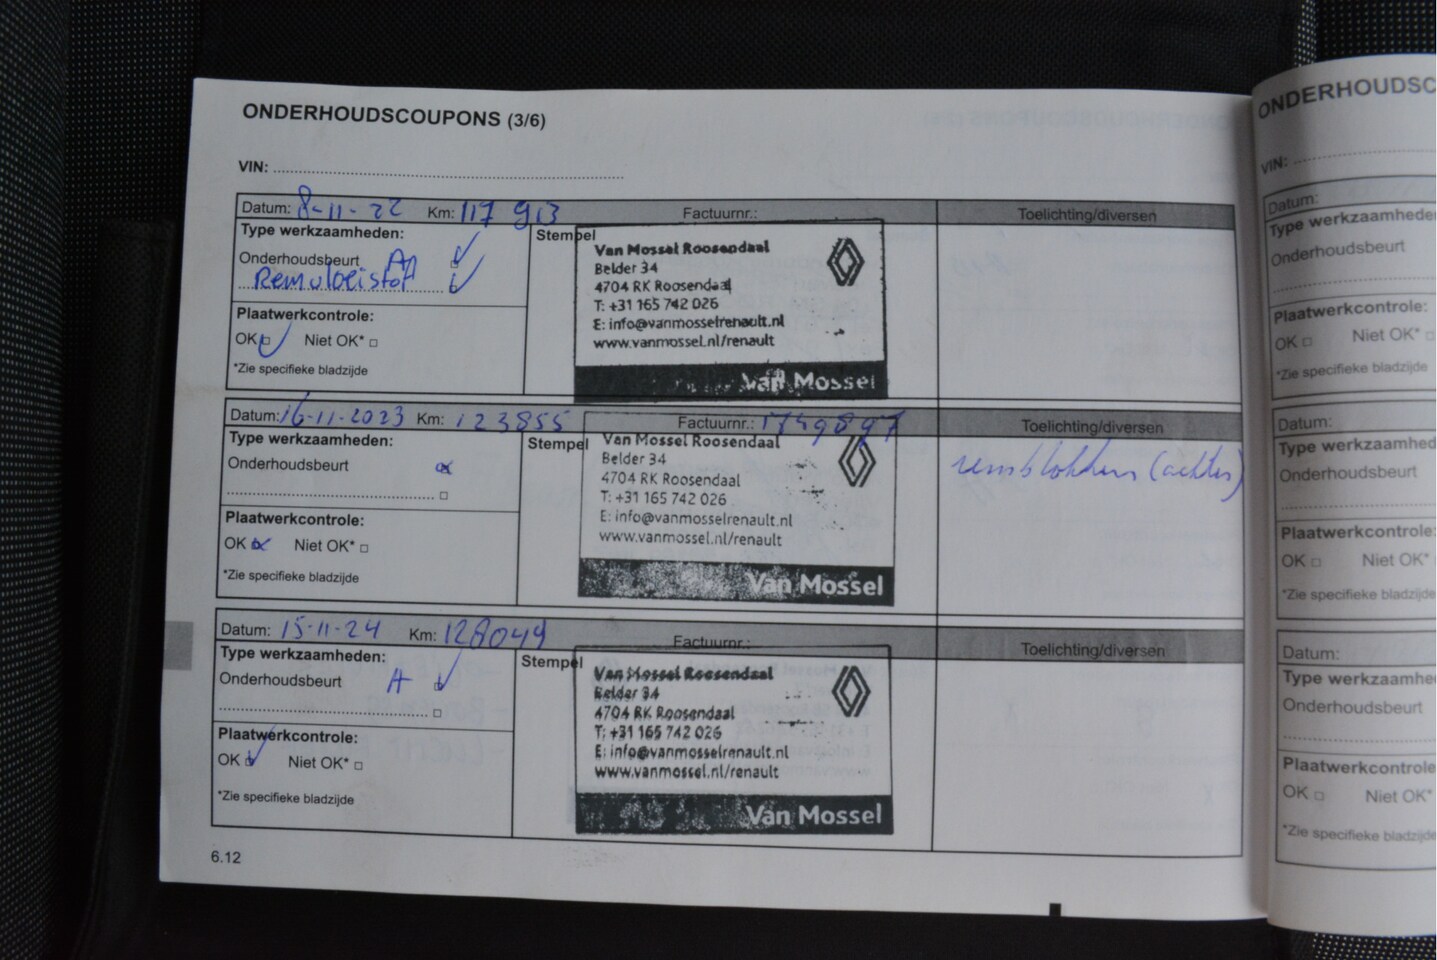 ONDERHOUDSCOUPONS (3/6)
VIN:
Datum: 8-11-22 Km: 117 913 Factuurnr.: Toelichting/diversen
Type werkzaamheden:
Onderhoudsbeurt
Remvloeistof
Plaatwerkcontrole:
OK Niet OK*
*Zie specifieke bladzijde
Stempel
Van Mossel Roosendaal
Belder 34
4704 RK Roosendaal
T: +31 165 742 026
E: info@vanmosselrenault.nl
www.vanmossel.nl/renault
Van Mossel
Datum: 16-11-2023 Km: 123855 Factuurnr.: 1749897 Toelichting/diversen
Type werkzaamheden:
Onderhoudsbeurt
Plaatwerkcontrole:
OK Niet OK*
*Zie specifieke bladzijde
Stempel
Van Mossel Roosendaal
Belder 34
4704 RK Roosendaal
T: +31 165 742 026
E: info@vanmosselrenault.nl
www.vanmossel.nl/renault
Van Mossel
remblokken (achter)
Datum: 15-11-24 Km: 128049 Factuurnr.: Toelichting/diversen
Type werkzaamheden:
Onderhoudsbeurt A
Plaatwerkcontrole:
OK Niet OK*
*Zie specifieke bladzijde
Stempel
Van Mossel Roosendaal
Belder 34
4704 RK Roosendaal
T: +31 165 742 026
E: info@vanmosselrenault.nl
www.vanmossel.nl/renault
Van Mossel
6.12
ONDERHOUDSC
VIN:
Datum:
Type werkzaamhede
Onderhoudsbeurt
Plaatwerkcontrole:
OK Niet OK*
*Zie specifieke bladzijde
Datum:
Type werkzaamhed
Onderhoudsbeurt
Plaatwerkcontrole:
OK Niet OK*
*Zie specifieke bladzijde
Datum:
Type werkzaamhe
Onderhoudsbeurt
Plaatwerkcontrole
OK Niet OK*
*Zie specifieke bladzijde